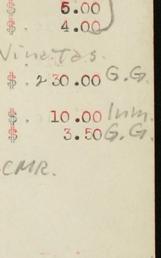 $ 5.00
$ . 4.00
$ . 230.00 G.G.
$ . 10.00 Inm.
$ 3.50 G.G.
CMR.